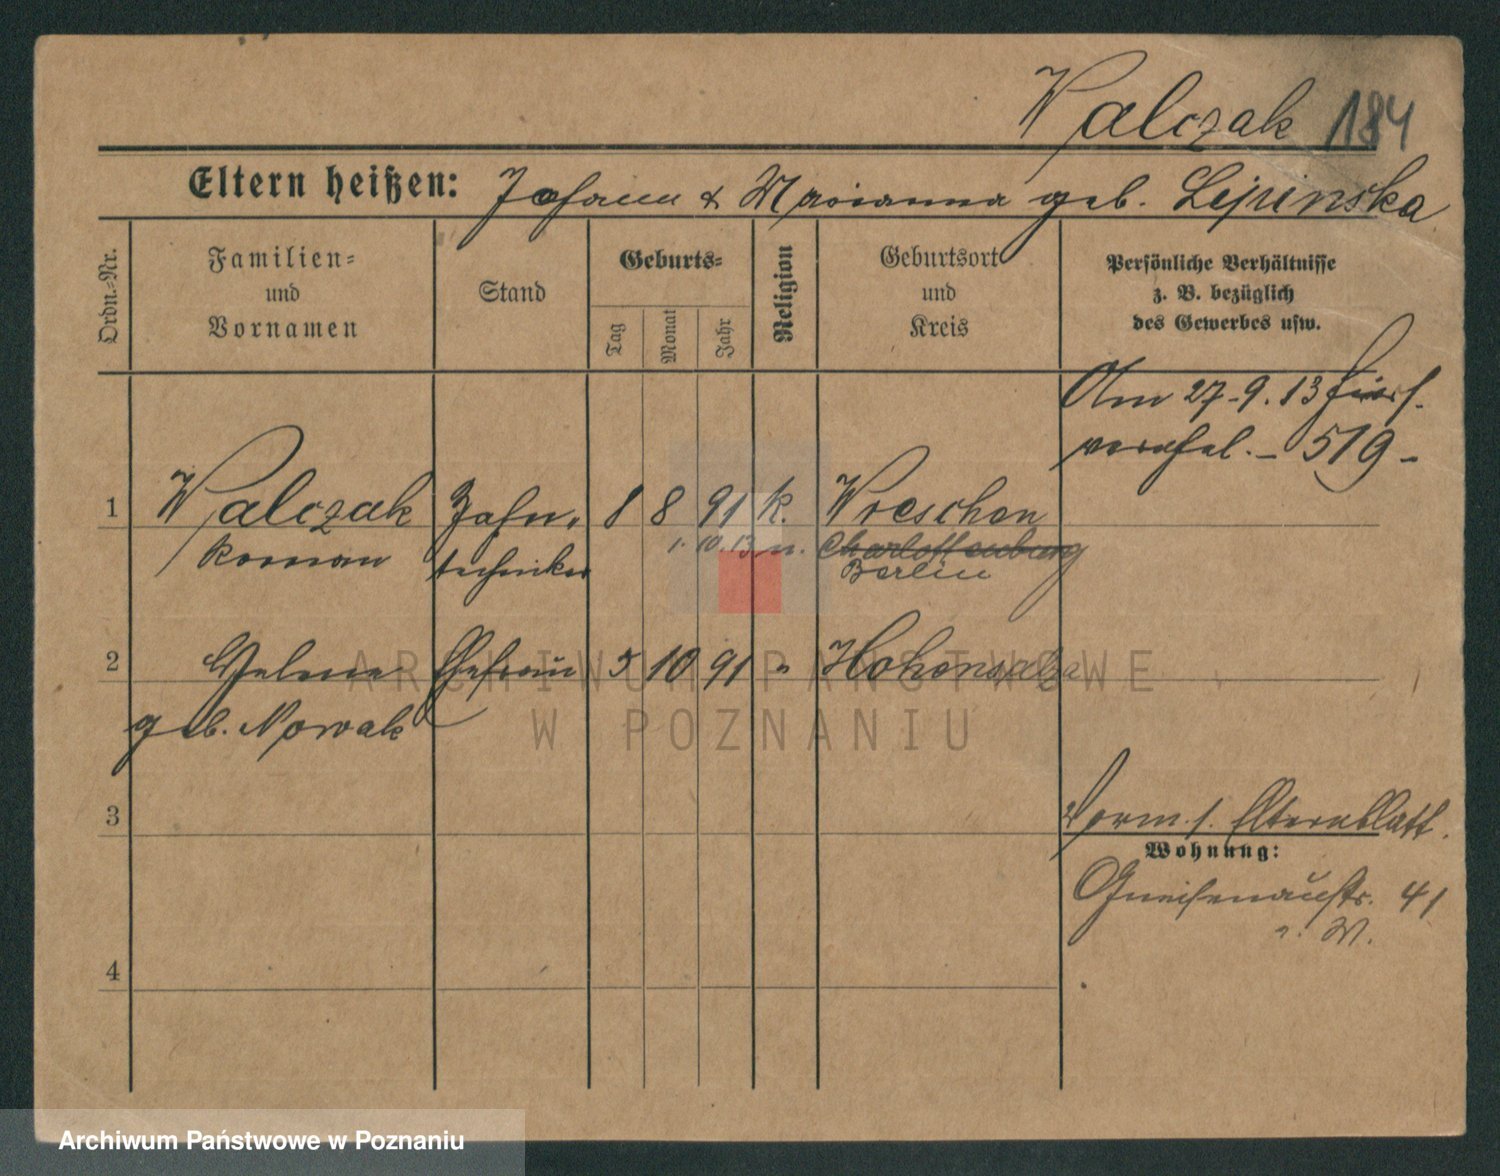 Walczak 184
Eltern heißen: Johann & Marianna geb. Lepinska
Ordn.-Nr.
Familien-
und
Vornamen
Stand
Geburts-
Tag
Monat
Jahr
Religion
Geburtsort
und
Kreis
Persönliche Verhältnisse
z. B. bezüglich
des Gewerbes usw.
Am 27.9.13 hiers.
verehel. - 519 -
1 Walczak Zahn- 8 8 91 k. Wreschen
Roman techniker 1.10.13 n. Charlottenburg
Berlin
2 Helene Ehefrau 5 10 91 " Hohensalza
geb. Nowak
3
Vorm. s. Elternblatt.
Wohnung:
Gneisenaustr. 41
W.
4
ARCHIWUM PAŃSTWOWE
W POZNANIU
Archiwum Państwowe w Poznaniu